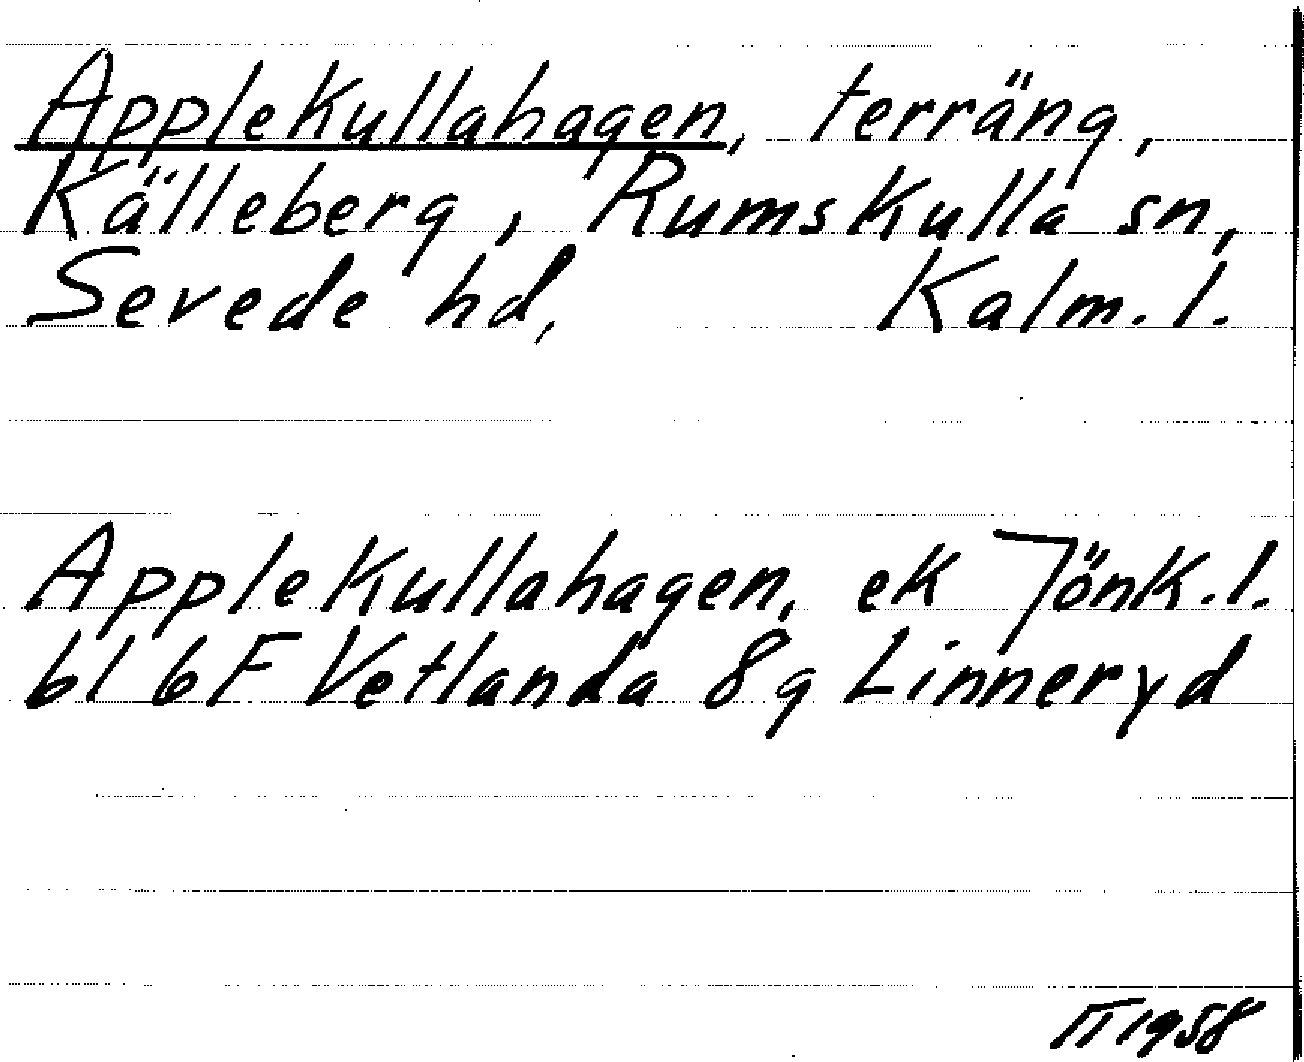 Applekullahagen, terräng,
Källeberg, Rumskulla sn,
Sevede hd, Kalm. l.
Applekullahagen, ek Jönk. l.
bl 6F Vetlanda 8g Linneryd
1958